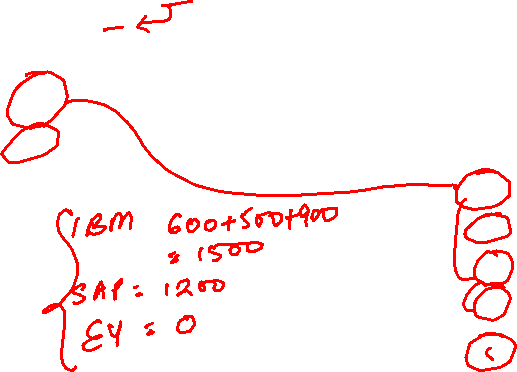 IBM 600+500+900
= 1500
SAP = 1200
EY = 0